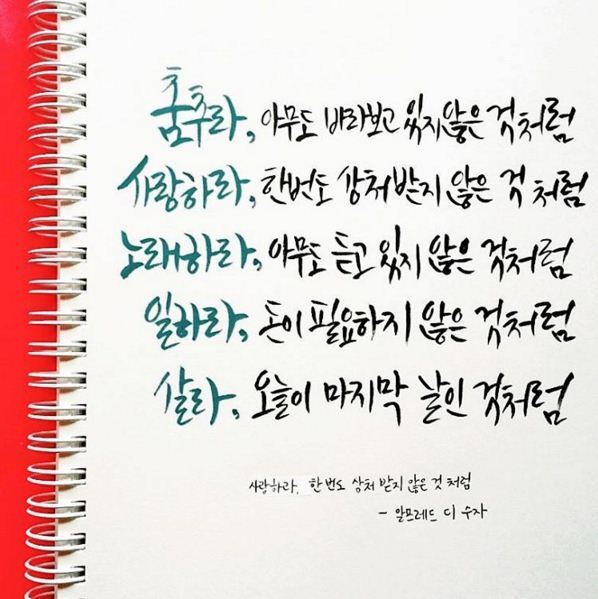 춤추라, 아무도 바라보고 있지 않은 것처럼
사랑하라, 한번도 상처받지 않은 것 처럼
노래하라, 아무도 듣고 있지 않은 것처럼
일하라, 돈이 필요하지 않은 것처럼
살라, 오늘이 마지막 날인 것처럼
사랑하라, 한번도 상처 받지 않은 것 처럼
- 알프레드 디 수자